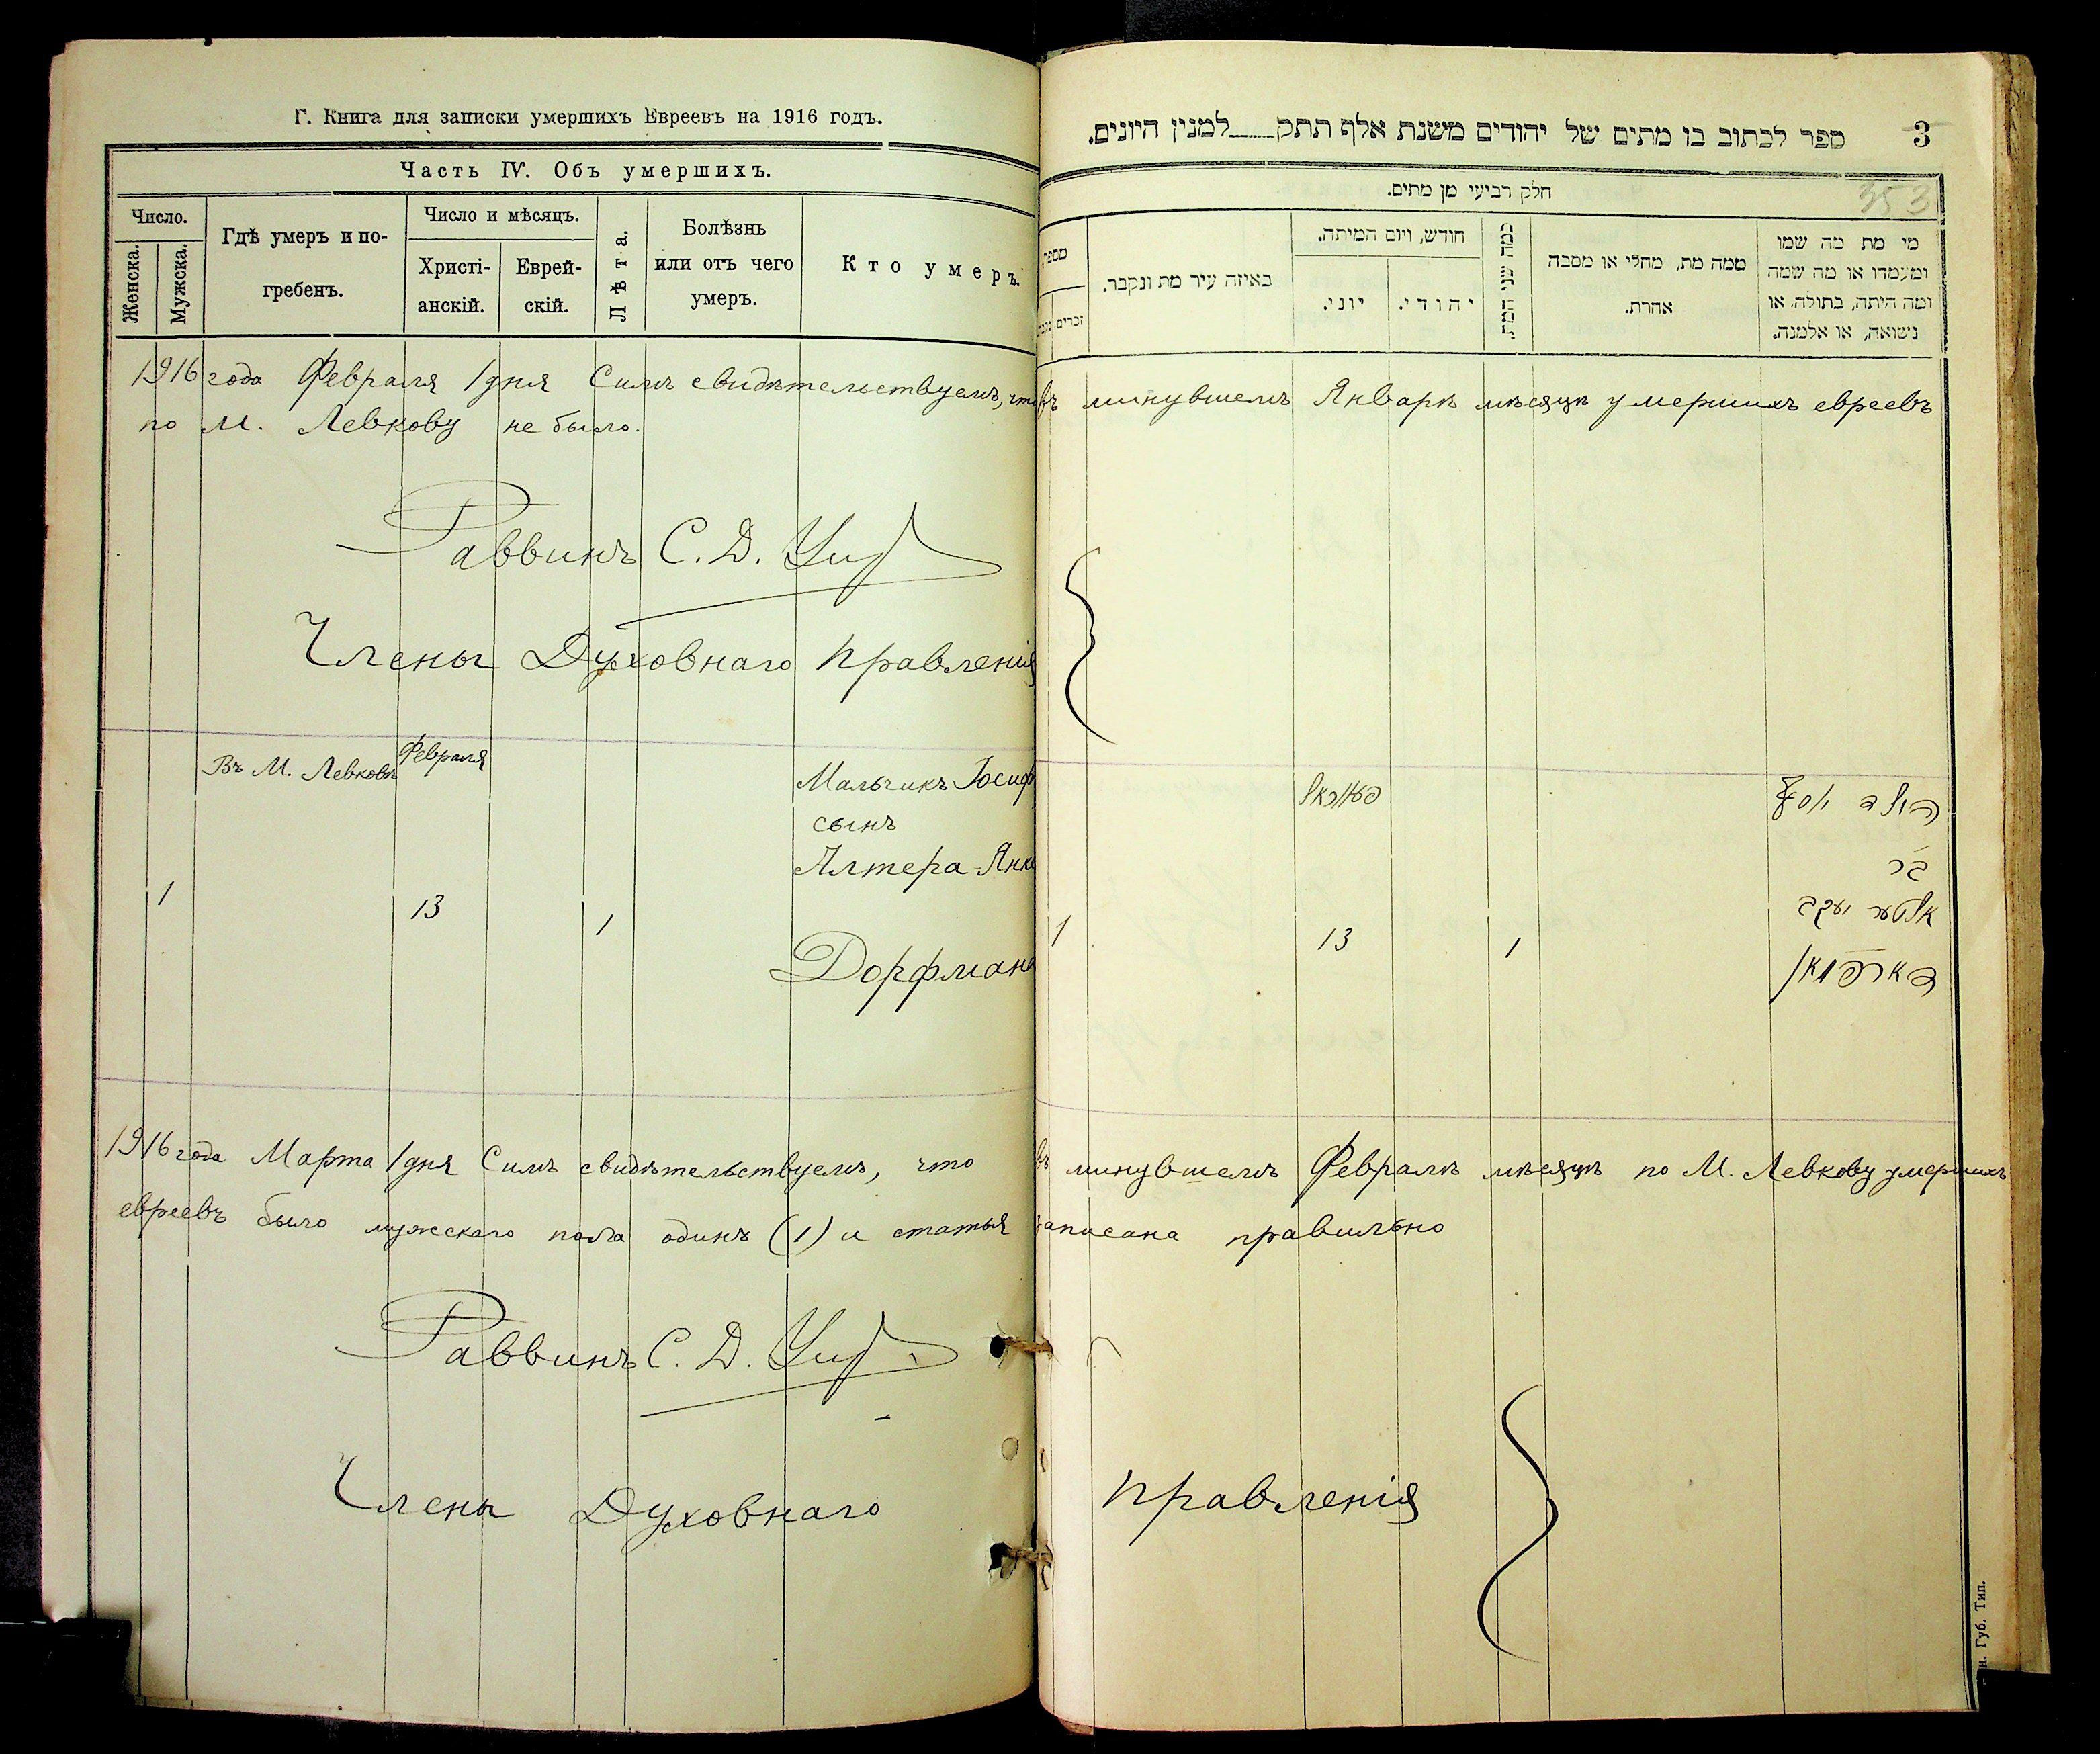 Г. Книга для записки умершихъ Евреевъ на 1916 годъ.
Часть IV. Объ умершихъ.
Число.
Женска.
Мужска.
Гдѣ умеръ и по-
гребенъ.
Число и мѣсяцъ.
Христі-
анскій.
Еврей-
скій.
Лѣта.
Болѣзнь
или отъ чего
умеръ.
Кто умеръ.
ספר לכתוב בו מתים של יהודים משנת אלף תתק למנין היונים.
3
353
חלק רביעי מן מתים.
מספר,
זכרים
באיזה עיר מת ונקבר.
חודש, ויום המיתה.
יוני.
יהודי.
כמה שני המת.
ממה מת, מחלי או מסבה
אחרת.
מי מת מה שמו
ומעמדו או מה שמה
ומה היתה, בתולה, או
נישואה, או אלמנה.
1916 года Февраля 1 дня Симъ свидѣтельствуемъ, что въ минувшемъ Январѣ мѣсяцѣ умершихъ евреевъ
по М. Левкову не было.
Раввинъ С. Д.
Члены Духовнаго правленія
Въ М. Левковѣ
Февраля
1
13
1
Мальчикъ Іосиф
сынъ
Алтера-Янк
Дорфмана
1
פעווראל
13
1
הילד יוסף
בר
אלטער יעקב
דארפמאן
1916 года Марта 1 дня Симъ свидѣтельствуемъ, что въ минувшемъ Февралѣ мѣсяцѣ по М. Левкову умершихъ
евреевъ было мужскаго пола одинъ (1) и статья записана правильно
Раввинъ С. Д.
Члены Духовнаго правленія
Губ. Тип.